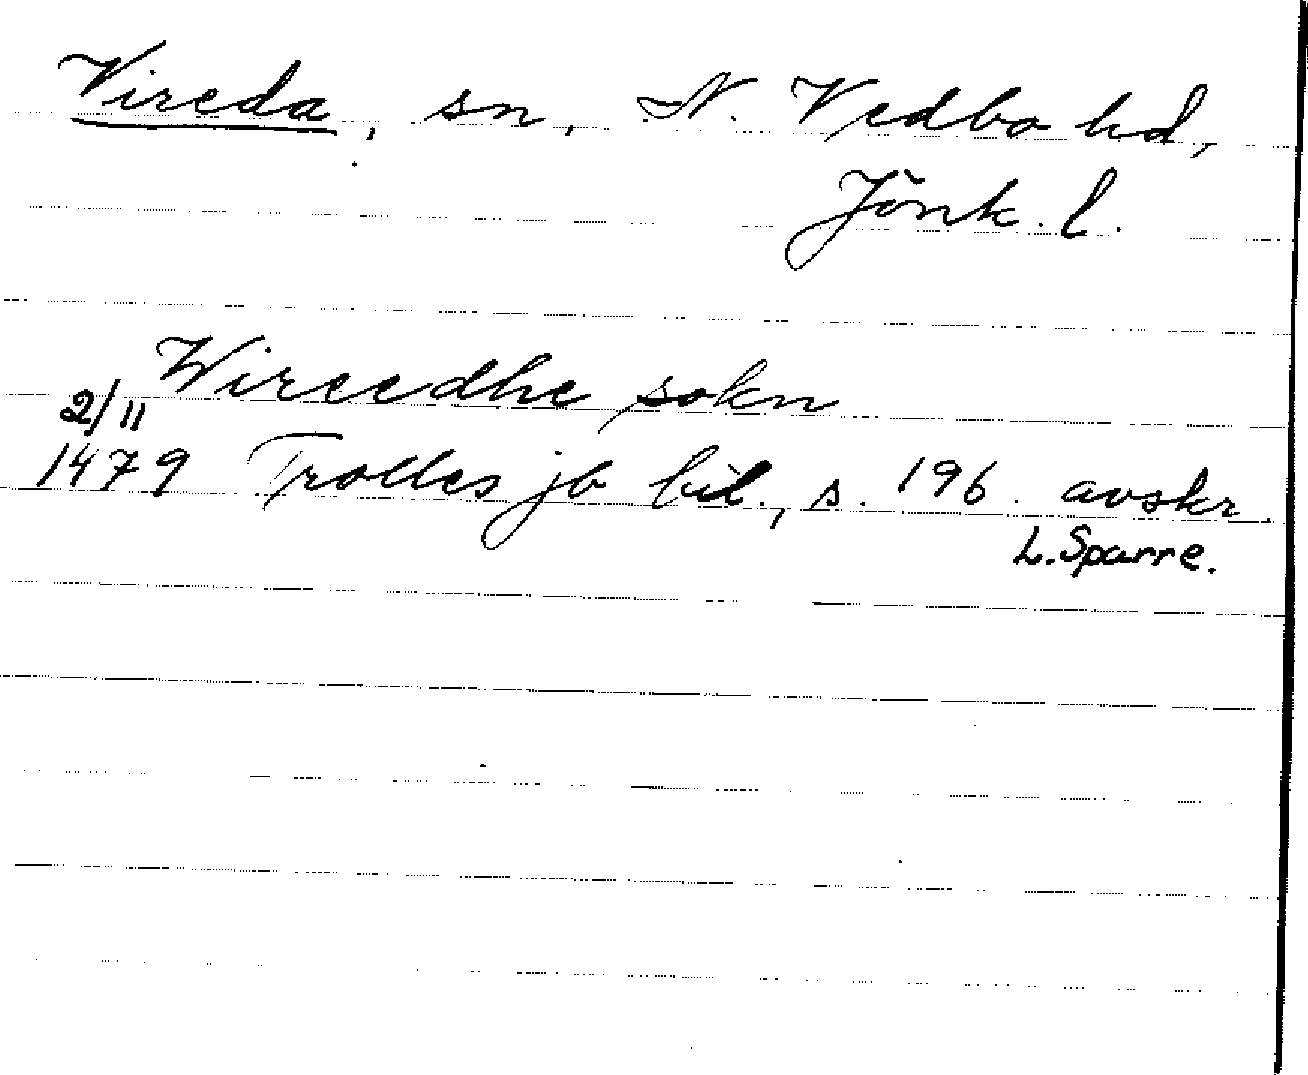 Vireda, sn, N. Vedbo hd,
Jönk. l.
Wireedhe sokn
2/11
1479 Trolles jb bil., s. 196. avskr.
L. Sparre.